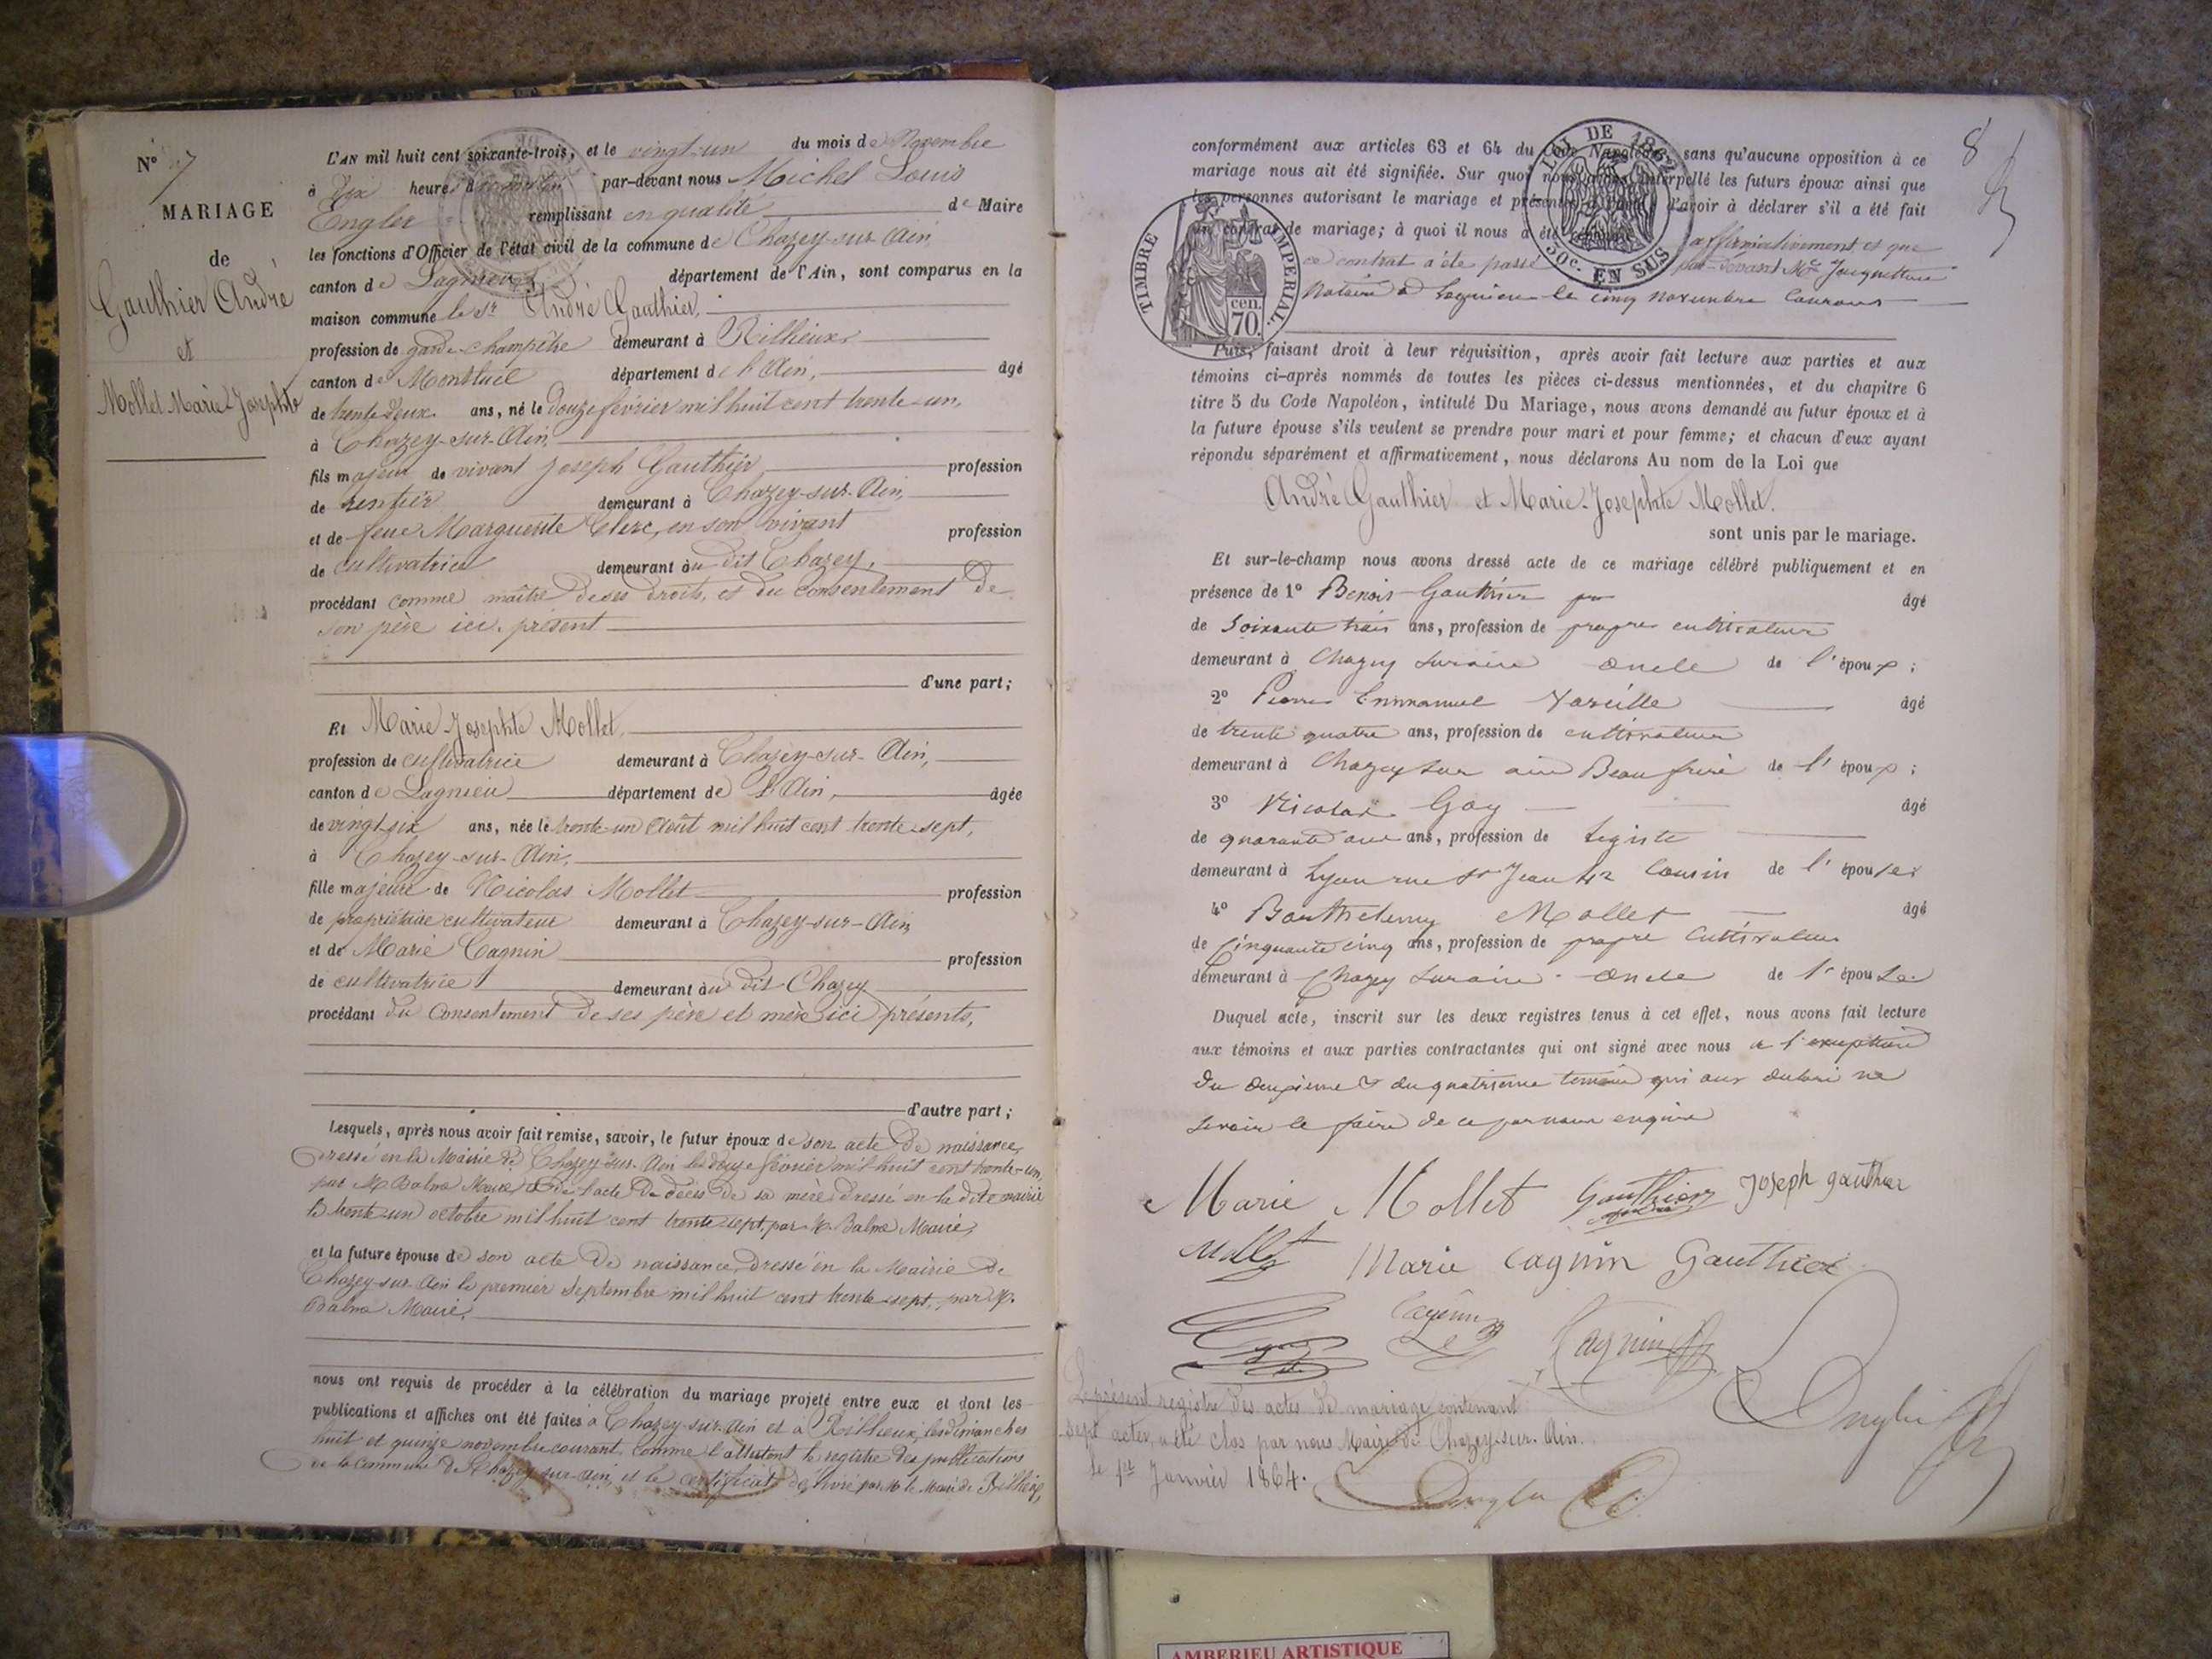 N° 7
MARIAGE
de
Gauthier André
et
Mollet Marie Josephte
L'AN mil huit cent soixante-trois, et le vingt-un du mois de Novembre
à dix heures du matin par-devant nous Michel Louis
Engler remplissant en qualité de Maire
les fonctions d'Officier de l'état civil de la commune de Chazey-sur-Ain,
canton de Lagnieu, département de l'Ain, sont comparus en la
maison commune le Sr André Gauthier,
profession de garde-champêtre demeurant à Rillieux
canton de Montluel département de l'Ain, âgé
de trente deux ans, né le douze février mil huit cent trente-un,
à Chazey-sur-Ain,
fils majeur de vivant Joseph Gauthier profession
de rentier demeurant à Chazey-sur-Ain,
et de feue Marguerite Clerc, en son vivant profession
de cultivatrice demeurant au dit Chazey,
procédant comme maître de ses droits, et du consentement de
son père ici présent
d'une part;
Et Marie Josephte Mollet,
profession de cultivatrice demeurant à Chazey-sur-Ain,
canton de Lagnieu département de l'Ain, âgée
de vingt six ans, née le trente-un Août mil huit cent trente-sept,
à Chazey-sur-Ain,
fille majeure de Nicolas Mollet profession
de propriétaire cultivateur demeurant à Chazey-sur-Ain,
et de Marie Cagnin profession
de cultivatrice demeurant au dit Chazey
procédant du consentement de ses père et mère ici présents,
d'autre part;
Lesquels, après nous avoir fait remise, savoir, le futur époux de son acte de naissance,
dressé en la Mairie de Chazey-sur-Ain le douze février mil huit cent trente-un,
par M. Balme Maire, & de l'acte de décès de sa mère dressé en la dite mairie
le trente-un octobre mil huit cent trente sept, par M. Balme Maire,
et la future épouse de son acte de naissance, dressé en la Mairie de
Chazey-sur-Ain le premier Septembre mil huit cent trente-sept, par M.
Balme Maire,
nous ont requis de procéder à la célébration du mariage projeté entre eux et dont les
publications et affiches ont été faites à Chazey-sur-Ain et à Rillieux, les dimanches
huit et quinze novembre courant, comme l'attestent le registre des publications
de la Commune de Chazey-sur-Ain, et le certificat délivré par M. le Maire de Rillieux,
8
conformément aux articles 63 et 64 du Code Napoléon, sans qu'aucune opposition à ce
mariage nous ait été signifiée. Sur quoi nous avons interpellé les futurs époux ainsi que
les personnes autorisant le mariage et présentes d'avoir à déclarer s'il a été fait
un contrat de mariage; à quoi il nous a été répondu affirmativement, et que
ce contrat a été passé par-devant Me
Notaire à Lagnieu le cinq novembre courant
LOI DE 1862
30c. EN SUS
TIMBRE IMPERIAL.
cen.
70.
Puis, faisant droit à leur réquisition, après avoir fait lecture aux parties et aux
témoins ci-après nommés de toutes les pièces ci-dessus mentionnées, et du chapitre 6
titre 5 du Code Napoléon, intitulé Du Mariage, nous avons demandé au futur époux et à
la future épouse s'ils veulent se prendre pour mari et pour femme; et chacun d'eux ayant
répondu séparément et affirmativement, nous déclarons Au nom de la Loi que
André Gauthier et Marie-Josephte Mollet.
sont unis par le mariage.
Et sur-le-champ nous avons dressé acte de ce mariage célébré publiquement et en
présence de 1° Benoit Gauthier âgé
de soixante trois ans, profession de propre cultivateur
demeurant à Chazey sur ain oncle de l'époux;
2° Pierre Emmanuel âgé
de trente quatre ans, profession de cultivateur
demeurant à Chazey sur ain Beau frère de l'époux;
3° Nicolas Goy âgé
de quarante ans, profession de legiste
demeurant à Lyon rue St Jean 42 Cousin de l'épouse;
4° Barthelemy Mollet âgé
de Cinquante cinq ans, profession de propre Cultivateur
demeurant à Chazey sur ain oncle de l'épouse
Duquel acte, inscrit sur les deux registres tenus à cet effet, nous avons fait lecture
aux témoins et aux parties contractantes qui ont signé avec nous a l'exception
du deuxieme & du quatrieme temoin qui ont declaré ne
savoir le faire de ce par nous enquis
Marie Mollet Gauthier Joseph gauthier
Mollet Marie Cagnin Gauthier
Cagnin Cagnin
Engler
Le présent registre des actes de mariage, contenant
sept actes, a été clos par nous Maire de Chazey-sur-Ain.
le 1er Janvier 1864.
Engler
AMBERIEU ARTISTIQUE